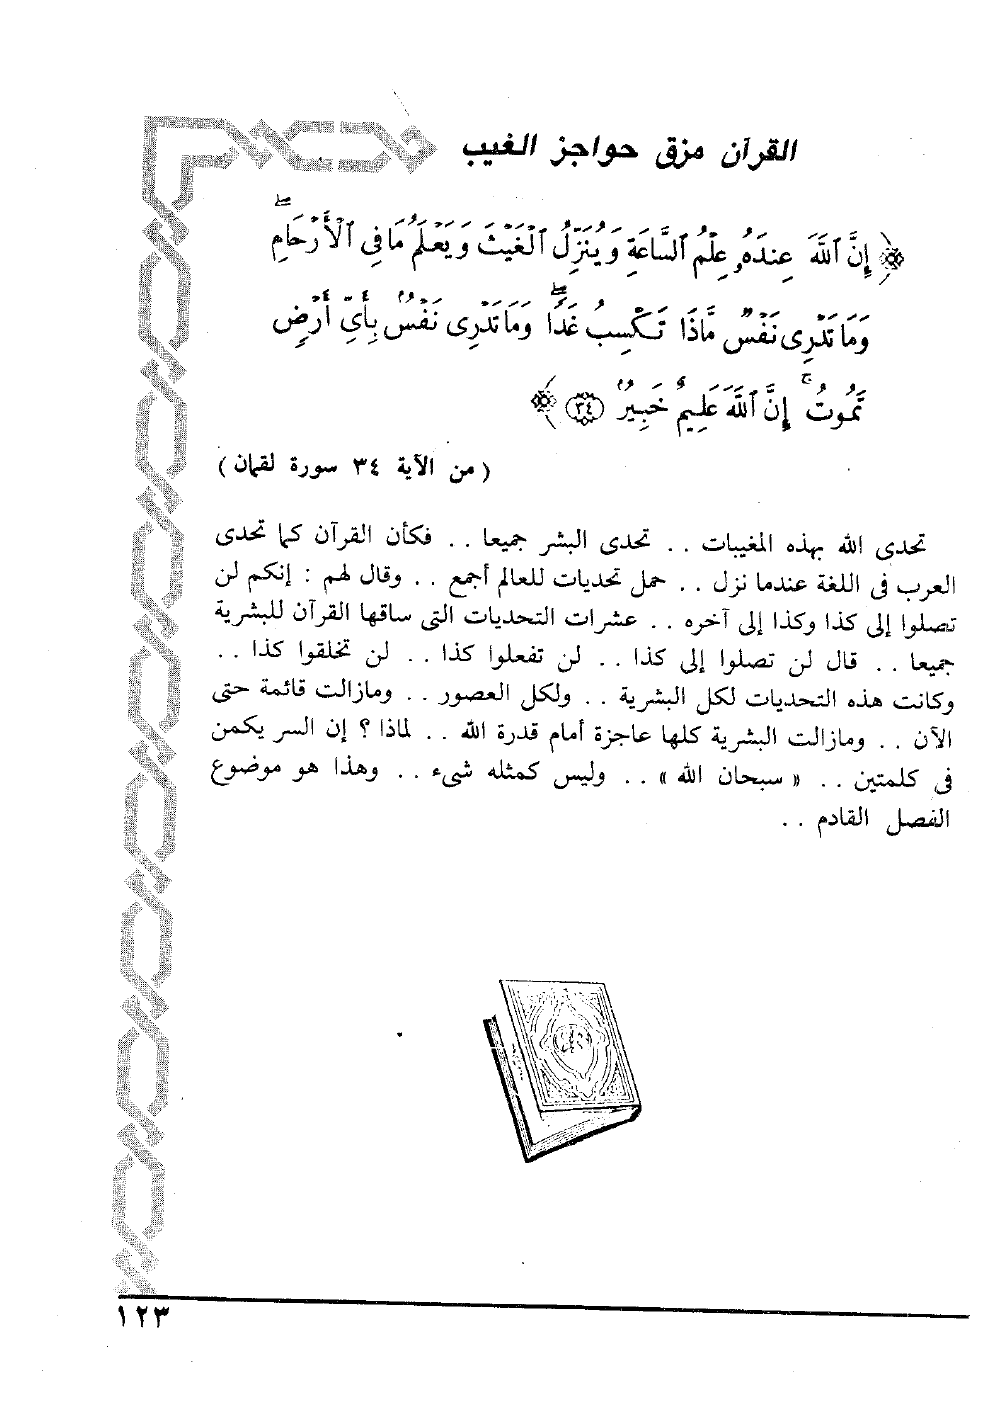 القرآن مزق حواجز الغيب
﴿ إِنَّ ٱللَّهَ عِندَهُۥ عِلْمُ ٱلسَّاعَةِ وَيُنَزِّلُ ٱلْغَيْثَ وَيَعْلَمُ مَا فِى ٱلْأَرْحَامِۖ
وَمَا تَدْرِى نَفْسٌ مَّاذَا تَكْسِبُ غَدًاۖ وَمَا تَدْرِى نَفْسٌۢ بِأَىِّ أَرْضٍ
تَمُوتُۚ إِنَّ ٱللَّهَ عَلِيمٌ خَبِيرٌۢ ٣٤ ﴾
( من الآية ٣٤ سورة لقمان )
تحدى الله بهذه المغيبات . . تحدى البشر جميعا . . فكأن القرآن كما تحدى
العرب فى اللغة عندما نزل . . حمل تحديات للعالم أجمع . . وقال لهم : إنكم لن
تصلوا إلى كذا وكذا إلى آخره . . عشرات التحديات التى ساقها القرآن للبشرية
جميعا . . قال لن تصلوا إلى كذا . . لن تفعلوا كذا . . لن تخلقوا كذا . .
وكانت هذه التحديات لكل البشرية . . ولكل العصور . . ومازالت قائمة حتى
الآن . . ومازالت البشرية كلها عاجزة أمام قدرة الله . . لماذا ؟ إن السر يكمن
فى كلمتين . . « سبحان الله » . . وليس كمثله شىء . . وهذا هو موضوع
الفصل القادم . .
١٢٣